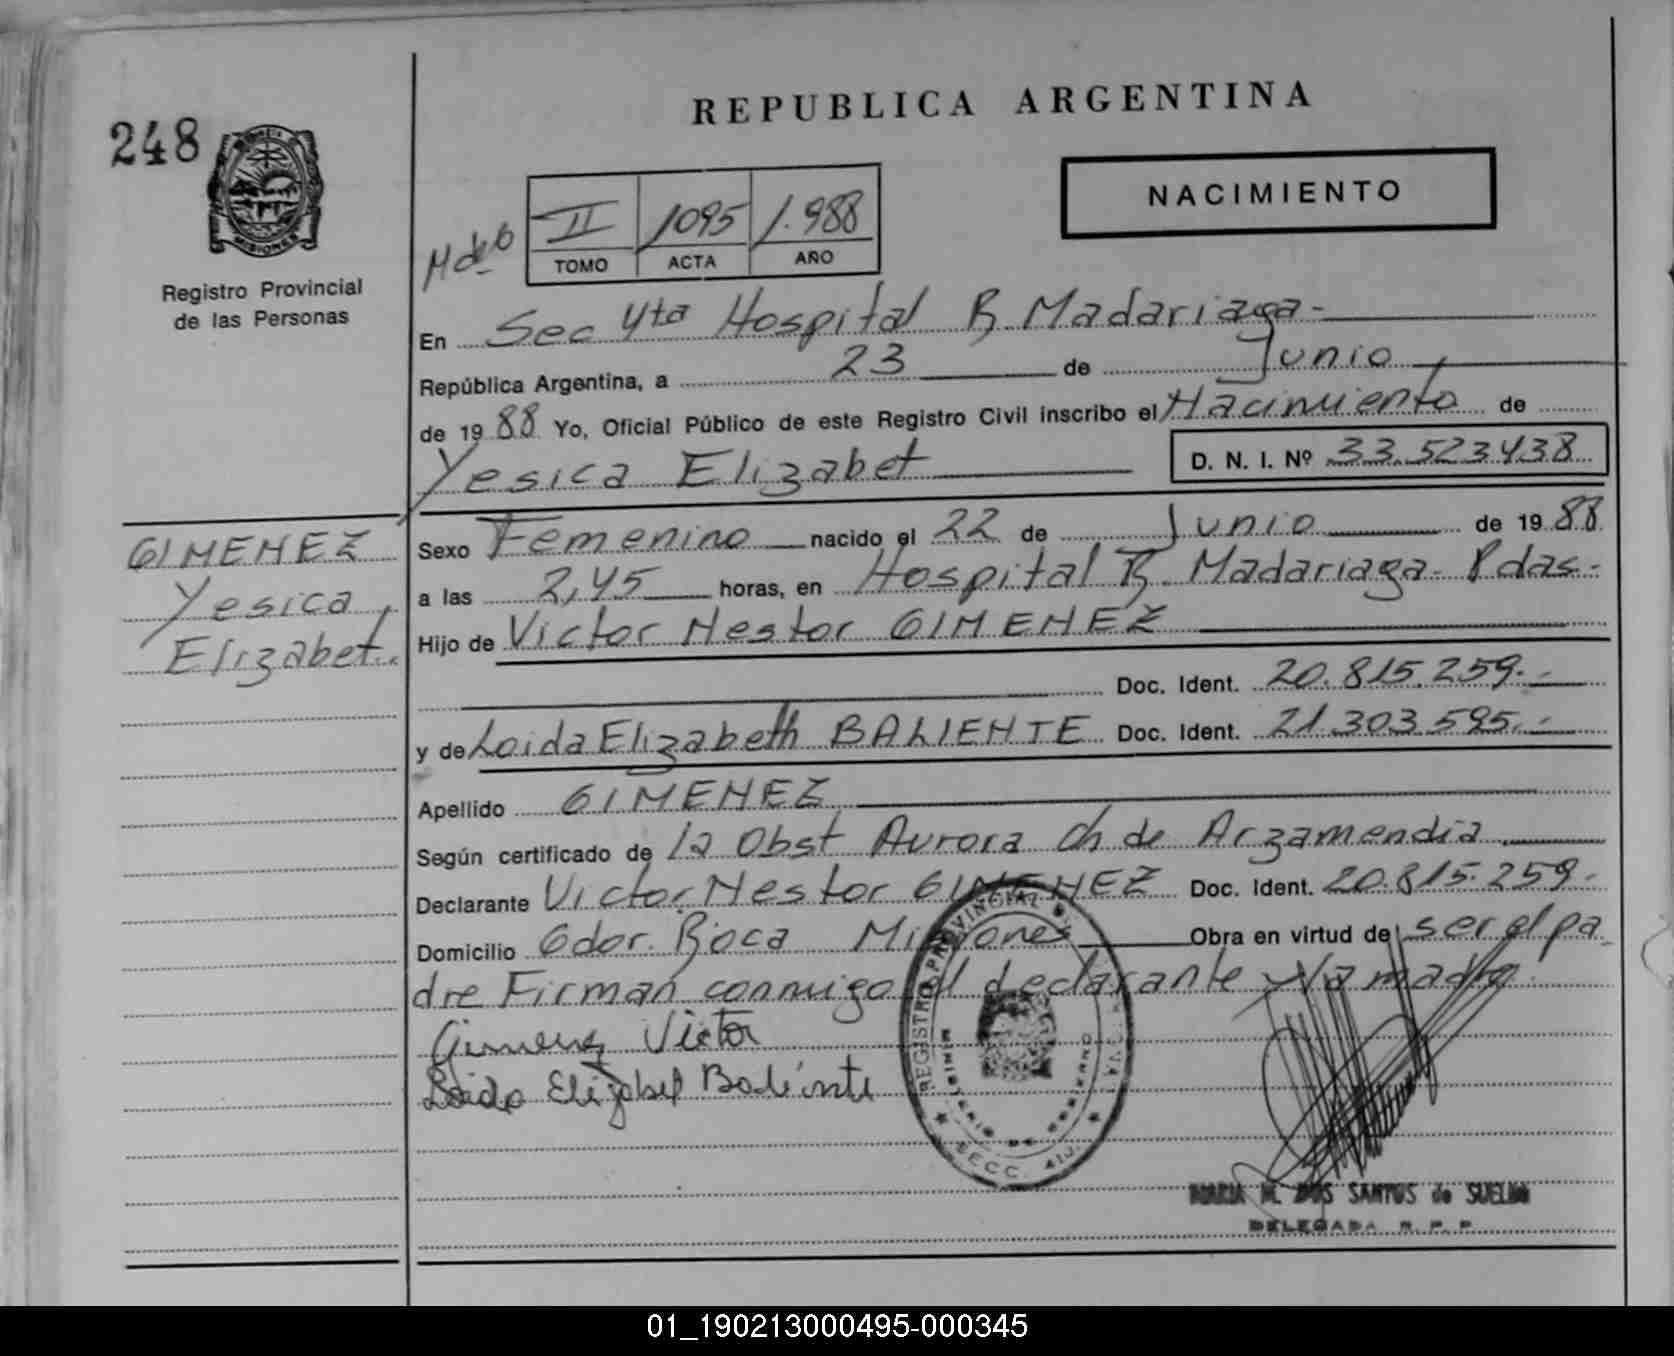 REPUBLICA ARGENTINA
248
NACIMIENTO
MISIONES
Registro Provincial
de las Personas
II 1095 1.988
TOMO ACTA AÑO
En Sec 4ta Hospital R Madariaga-
República Argentina, a 23 de Junio
de 1988 Yo, Oficial Público de este Registro Civil inscribo el Nacimiento de
Yesica Elizabet D. N. I. Nº 33.523.438
GIMENEZ
Yesica
Elizabet.
Sexo Femenino nacido el 22 de Junio de 1988
a las 2,45 horas, en Hospital R. Madariaga- Pdas-
Hijo de Victor Nestor GIMENEZ
Doc. Ident. 20.815.259.-
y de Loida Elizabeth BALIENTE Doc. Ident. 21.303.595.-
Apellido GIMENEZ
Según certificado de la Obst Aurora Ch de Arzamendia
Declarante Victor Nestor GIMENEZ Doc. Ident. 20.815.259-
Domicilio Gdor. Roca Misiones Obra en virtud de ser el pa
dre Firman conmigo el declarante y la madre.
Gimenez Victor
Loida Elizabet
REGISTRO PROVINCIAL
MINISTERIO DE GOBIERNO
SECC. 4ta.
MARIA M. DOS SANTOS de
DELEGADA R. P. P.
01_190213000495-000345